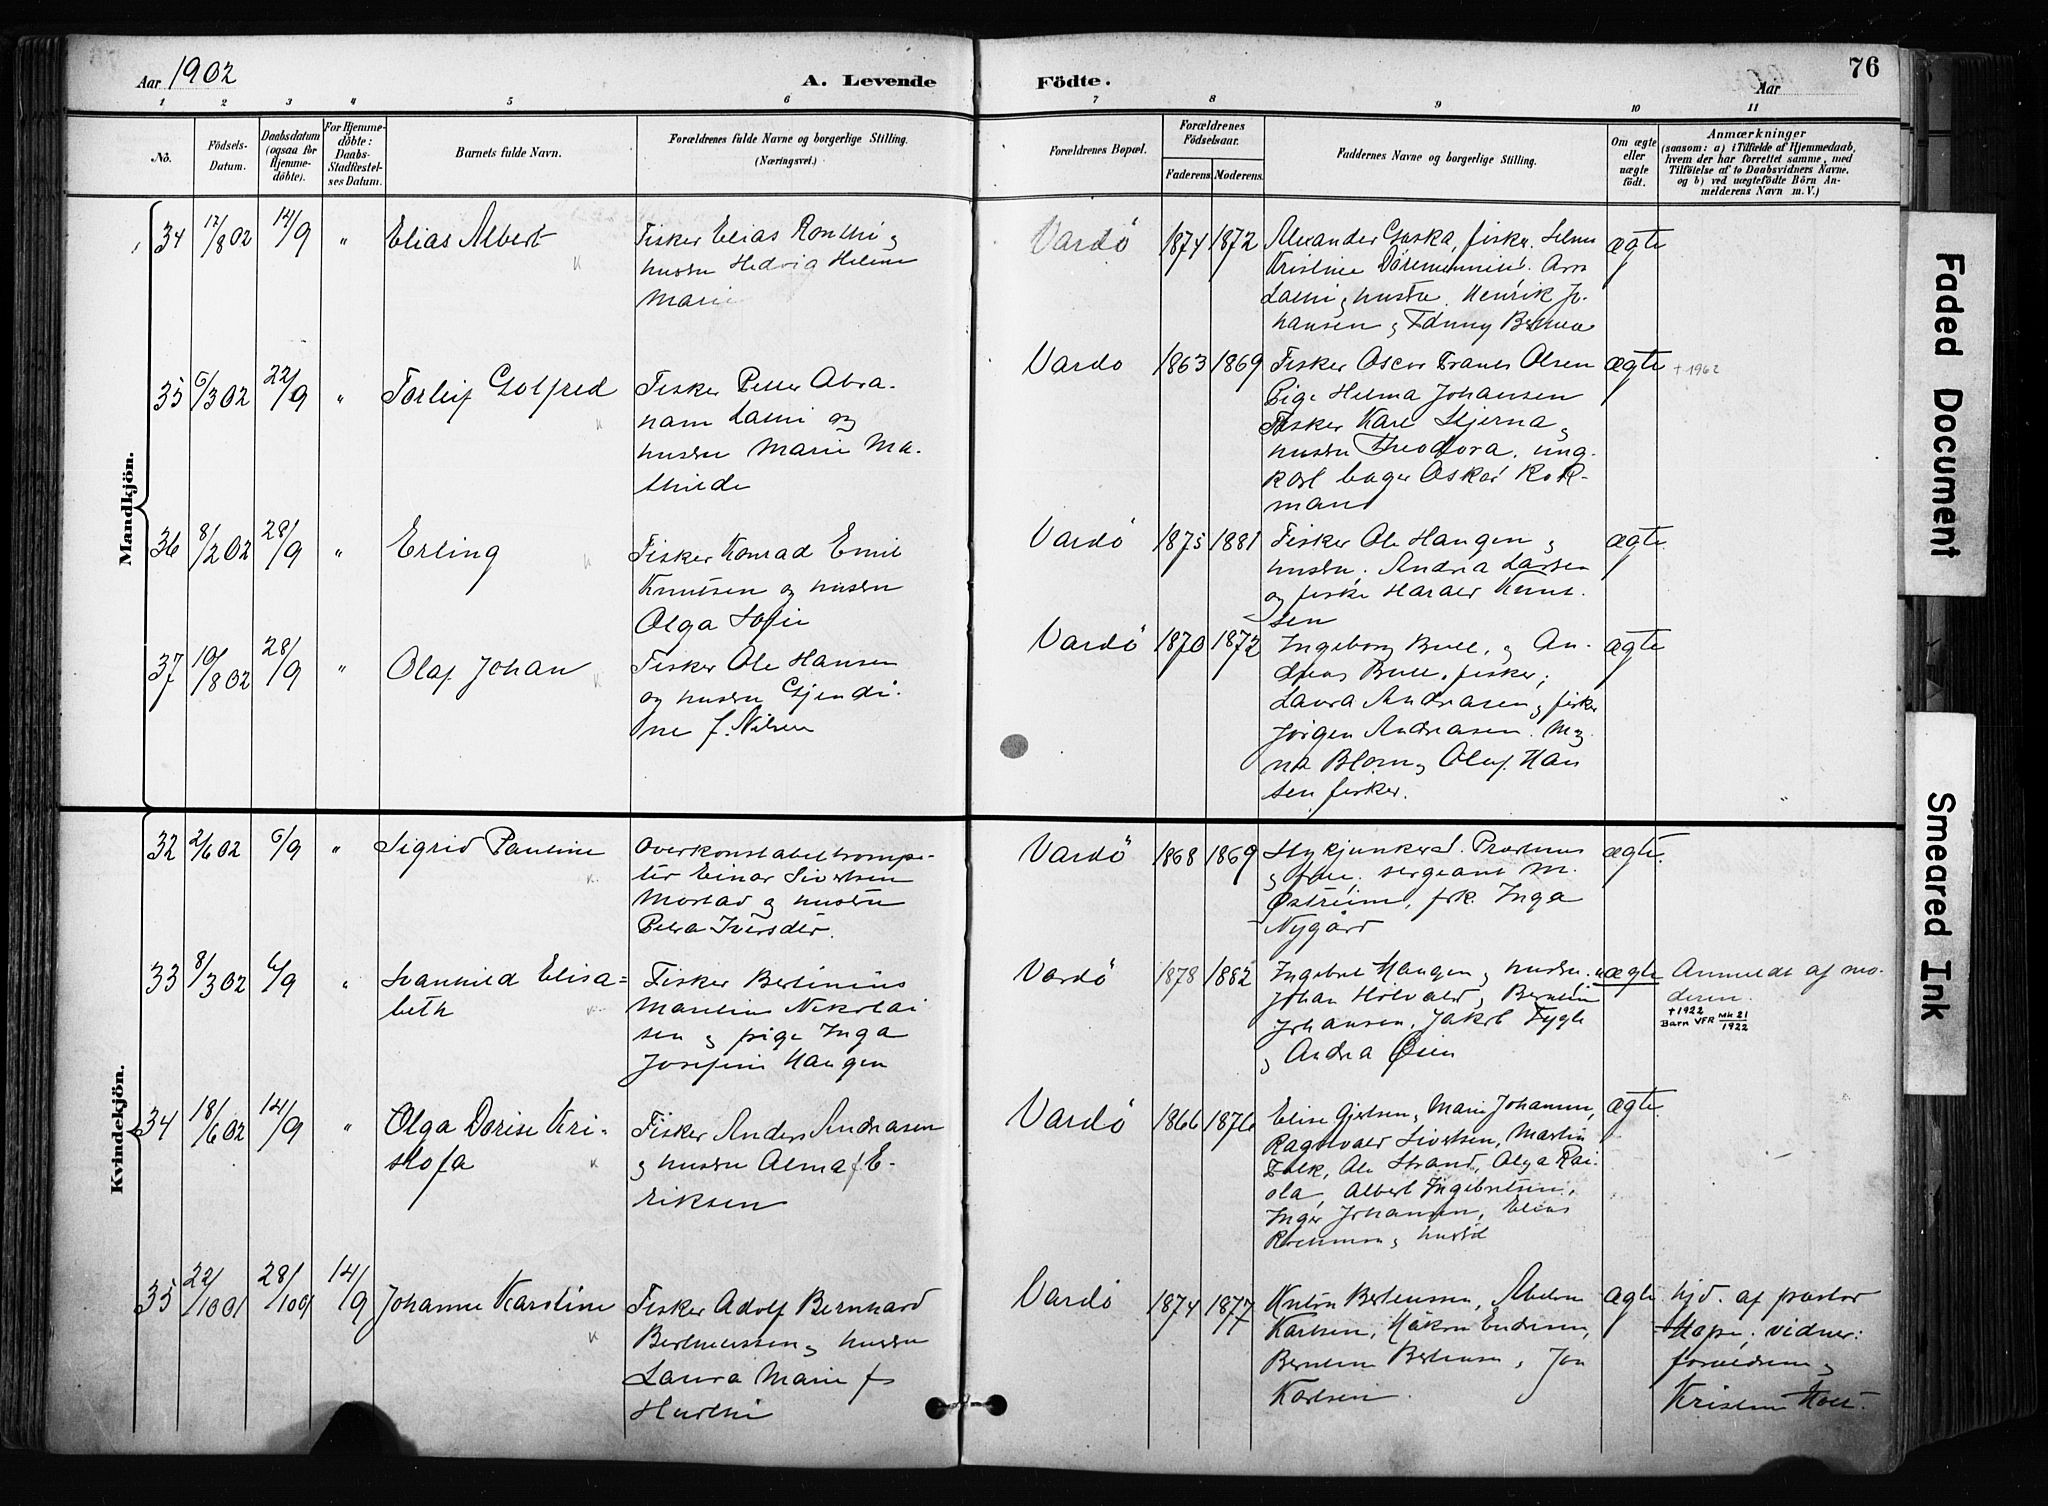 Aar 1902
A. Levende
Födte.
Aar
76
1 2 3 4 5 6 7 8 9 10 11
No.
Födsels-
Datum.
Daabsdatum
(ogsaa for
Hjemme-
döbte).
For Hjemme-
döbte:
Daabs-
Stadfæstel-
ses Datum.
Barnets fulde Navn.
Forældrenes fulde Navne og borgerlige Stilling.
(Næringsvei.)
Forældrenes Bopæl.
Forældrenes
Födselsaar.
Faderens. Moderens.
Faddernes Navne og borgerlige Stilling.
Om ægte
eller
uægte
födt.
Anmærkninger
(saasom: a) i Tilfælde af Hjemmedaab,
hvem der har forrettet samme, med
Tilföielse af to Daabsvidners Navne,
og b) ved uægtefödte Börn An-
melderens Navn m. V.)
Mandkjön.
34 12/8 02 14/9 " Elias Albert
Fisker Elias
hustru Hedvig Helene
Marie
Vardö 1874 1872
Alexander fisker
Kristine
hustru Henrik Jo-
hansen og
ægte
35 6/3 02 22/9 " Torleif Gotfred
Fisker Peter Abra-
ham Lassi og
hustru Marie Ma-
thilde
Vardö 1863 1869
Fisker Oscar Frants Olsen
Pige Helma Johansen
Fisker Karl Stjerna og
hustru Theodora, ung-
karl bager Oskar Kok-
mann
ægte
+ 1962
36 8/2 02 28/9 " Erling
Fisker Konrad Emil
Knutsen og hustru
Olga Sofie
Vardö 1875 1881
Fisker Ole Haugen og
hustru, Andrea Larsen
og fisker Harald Knut-
sen
ægte.
37 10/8 02 28/9 " Olaf Johan
Fisker Ole Hansen
og hustru Gjendi-
ne f. Nilsen
Vardö 1870 1872
Ingeborg Bull, og An-
dreas Bull, fisker,
Laura Andreasen og fisker
Jörgen Andreasen. Mag-
na Blom og Olaf Han
sen fisker.
ægte
Kvindekjön.
32 2/6 02 6/9 " Sigrid Pauline
Overkonstabeltrompe-
tér Einar Sivertsen
Morstad og hustru
Petra Iversdtr.
Vardö 1868 1869
Stykjunker
og frue, sergeant M.
Østreim, frk. Inga
Nygård
ægte.
33 8/3 02 6/9 " Svanhild Elisa-
beth
Fisker Bertinius
Marelius Nikolai
sen og pige Inga
Josefine Haugen
Vardö 1878 1882
Ingebret Haugen og hustru
Johan og Berntin
Johansen, Jakob
og Andrea Øien
uægte
Anmeldt af mo-
deren.
+ 1922
Barn VFR MK 21/1922
34 18/6 02 14/9 " Olga Dorise Kri-
stofa
Fisker Anders Andreasen
og hustru Alma f E-
riksen
Vardö 1866 1876
Elise Gjertsen, Marie Johansen,
Ragnvald Sivertsen, Martin
Falk, Ole Strand, Olga Rai-
ola, Albert Ingebretsen,
Inger Johansen, Elias
og hustru
ægte.
35 22/10 01 28/10 01 14/9 Johanne Karoline
Fisker Adolf Bernhard
Bertheussen og hustru
Laura Marie f
Vardö 1874 1877
Anton Bertheussen,
Karlsen, Håkon Endresen,
Berntine og Jon
Karlsen.
ægte
hjd. af pastor
Hope, vidner:
forældrene og
Kristian Holt.
Faded Document
Smeared Ink